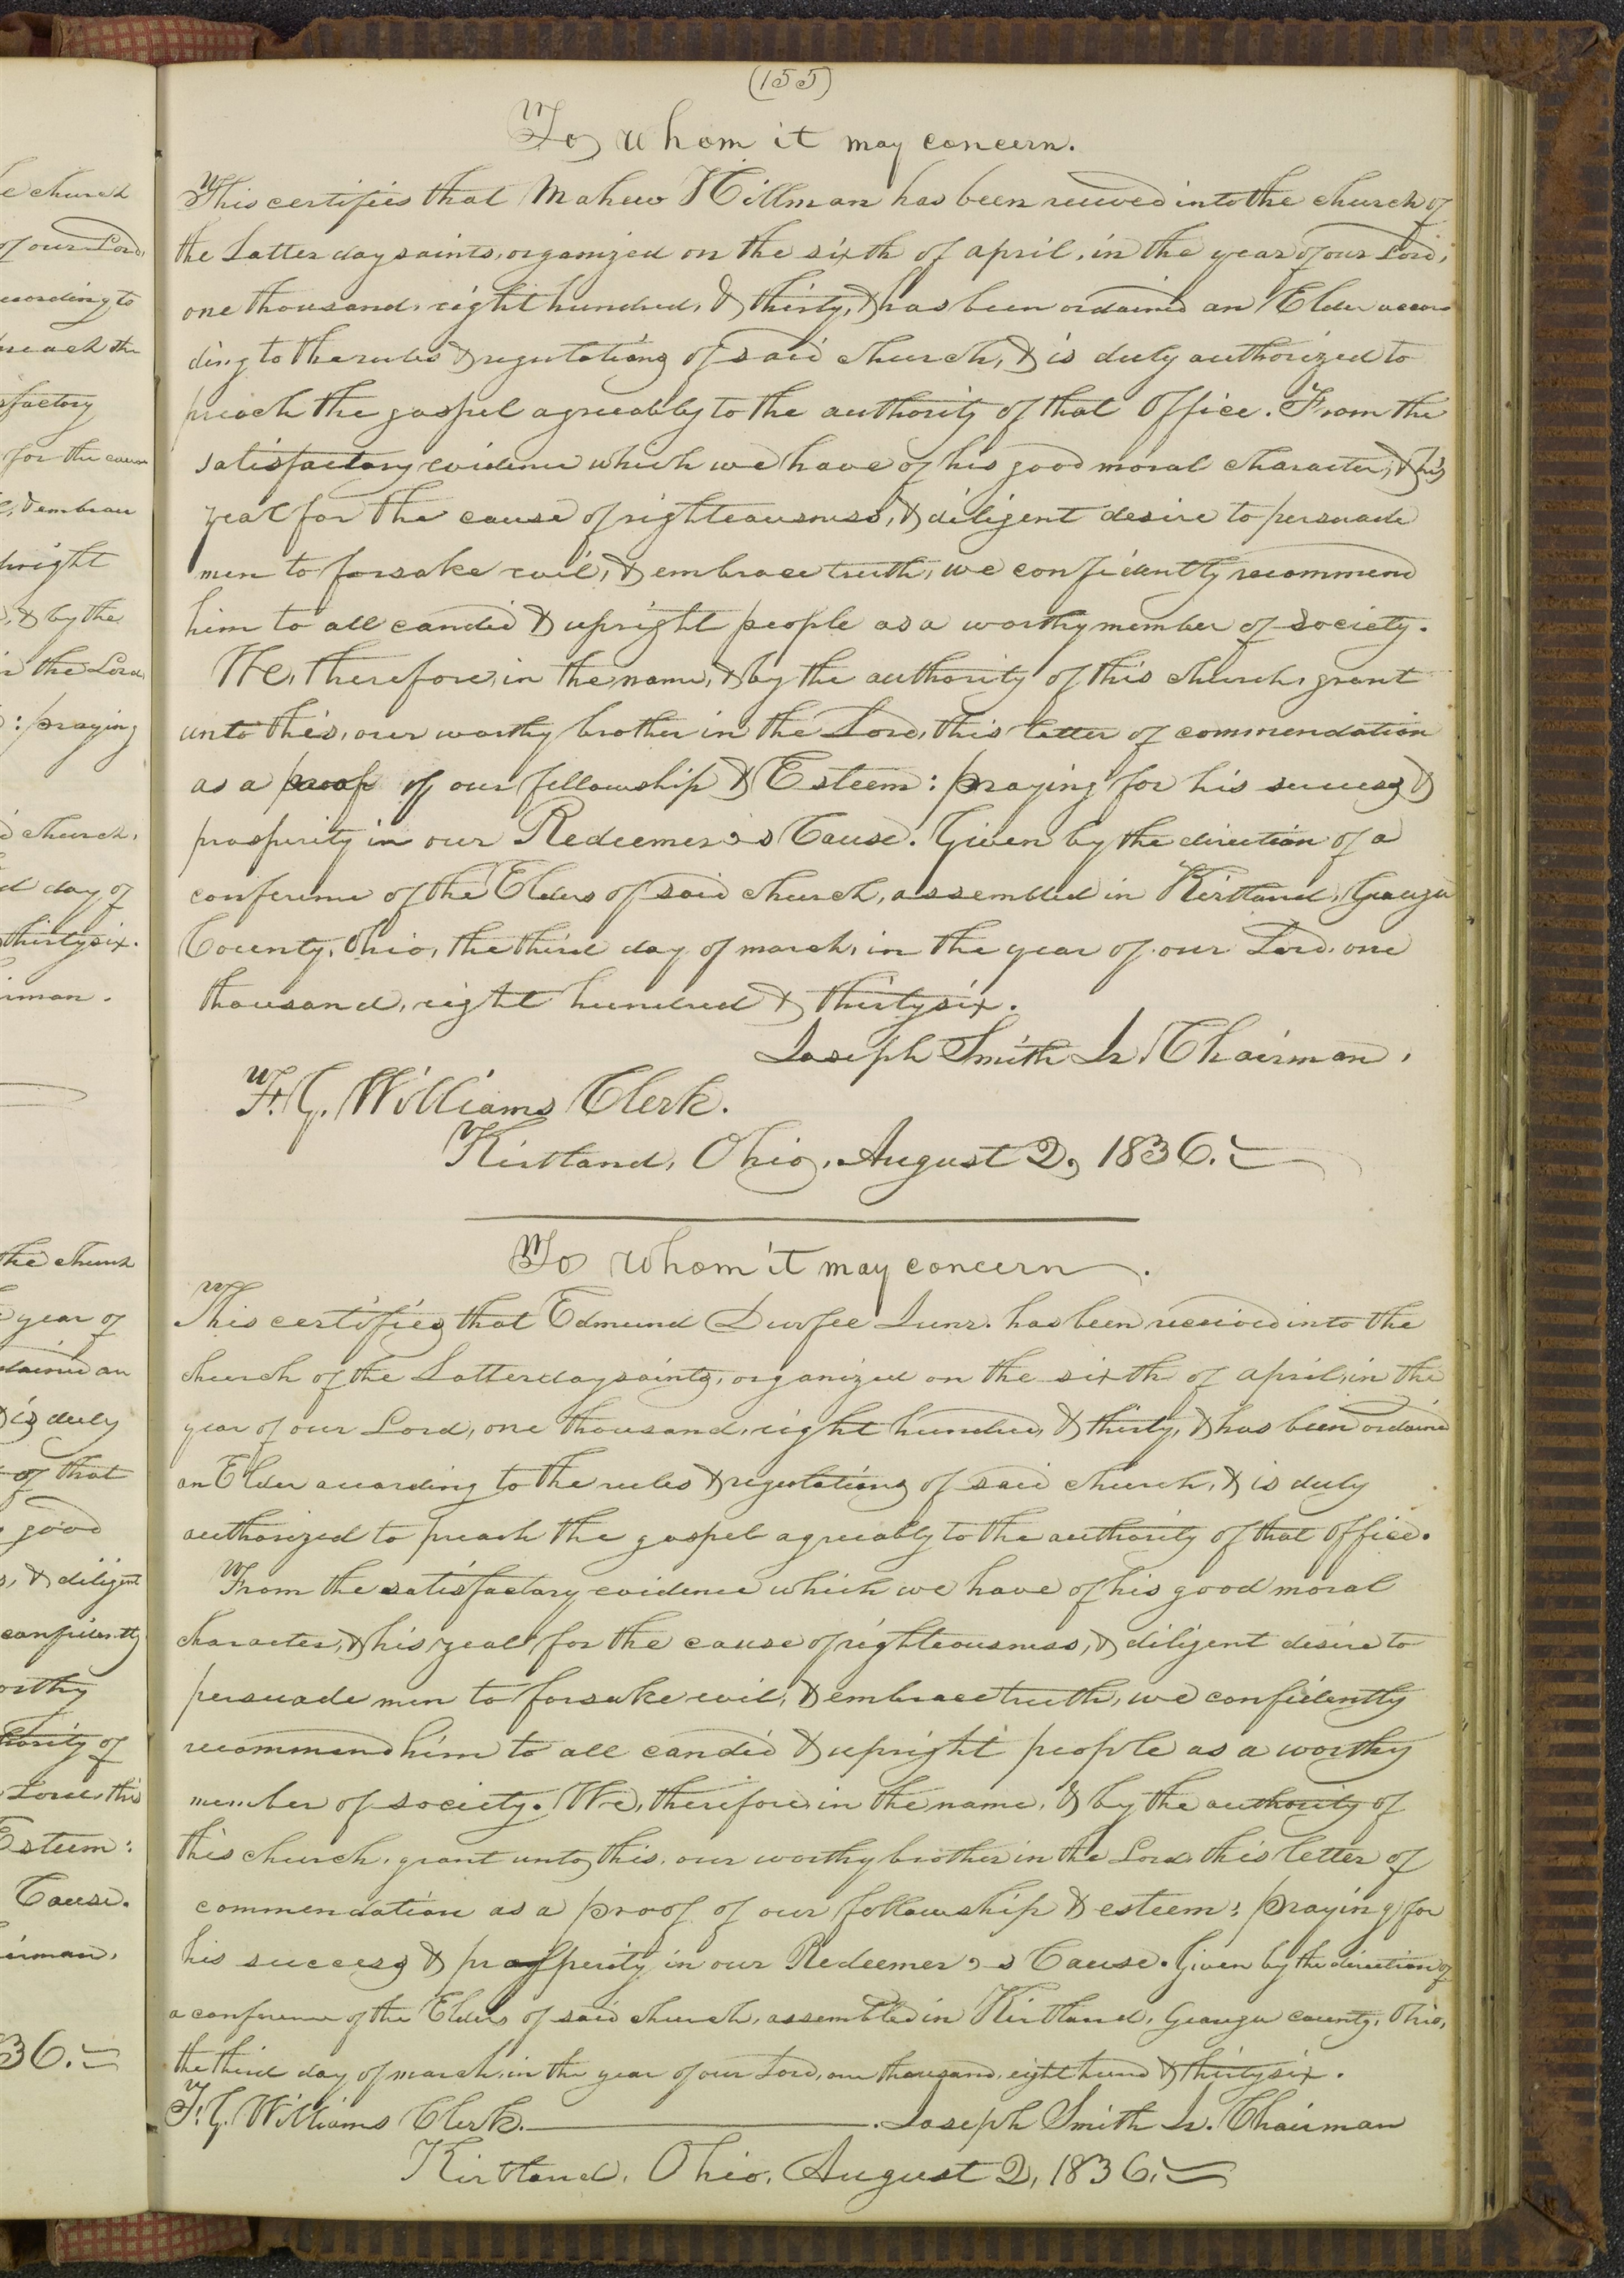 (155)
To whom it may concern.
This certifies that Mahew Hillman has been received into the church of
the Latter day saints, organized on the sixth of april, in the year of our Lord,
one thousand, eight hundred, & thirty, & has been ordained an Elder accor
ding to the rules & regulations of said church, & is duly authorized to
preach the gospel agreeably to the authority of that Office. From the
satisfactory evidence which we have of his good moral character, & his
zeal for the cause of righteousness, & diligent desire to persuade
men to forsake evil, & embrace truth, we confidently recommend
him to all candid & upright people as a worthy member of society.
We, therefore, in the name, & by the authority of this church, grant
unto this, our worthy brother in the Lord, this letter of commendation
as a proof of our fellowship & Esteem: praying for his success &
prosperity in our Redeemer's Cause. Given by the direction of a
conference of the Elders of said church, assembled in Kirtland, Geauga
County, Ohio, the third day of march, in the year of our Lord, one
thousand, eight hundred & thirty six.
Joseph Smith Jr. Chairman,
F. G. Williams Clerk.
Kirtland, Ohio, August 2, 1836.
To whom it may concern.
This certifies that Edmund Durfee Junr. has been received into the
church of the Latter day saints, organized on the sixth of april, in the
year of our Lord, one thousand, eight hundred, & thirty, & has been ordained
an Elder according to the rules & regulations of said church, & is duly
authorized to preach the gospel agreeably to the authority of that Office.
From the satisfactory evidence which we have of his good moral
character, & his zeal for the cause of righteousness, & diligent desire to
persuade men to forsake evil, & embrace truth, we confidently
recommend him to all candid & upright people as a worthy
member of society. We, therefore, in the name, & by the authority of
this church, grant unto this, our worthy brother in the Lord, this letter of
commendation as a proof of our fellowship & esteem: praying for
his success & prosperity in our Redeemer's Cause. Given by the direction of
a conference of the Elders of said church, assembled in Kirtland, Geauga county, Ohio,
the third day of march, in the year of our Lord, one thousand, eight hund & thirty six.
F. G. Williams Clerk. Joseph Smith Jr. Chairman
Kirtland, Ohio, August 2, 1836.